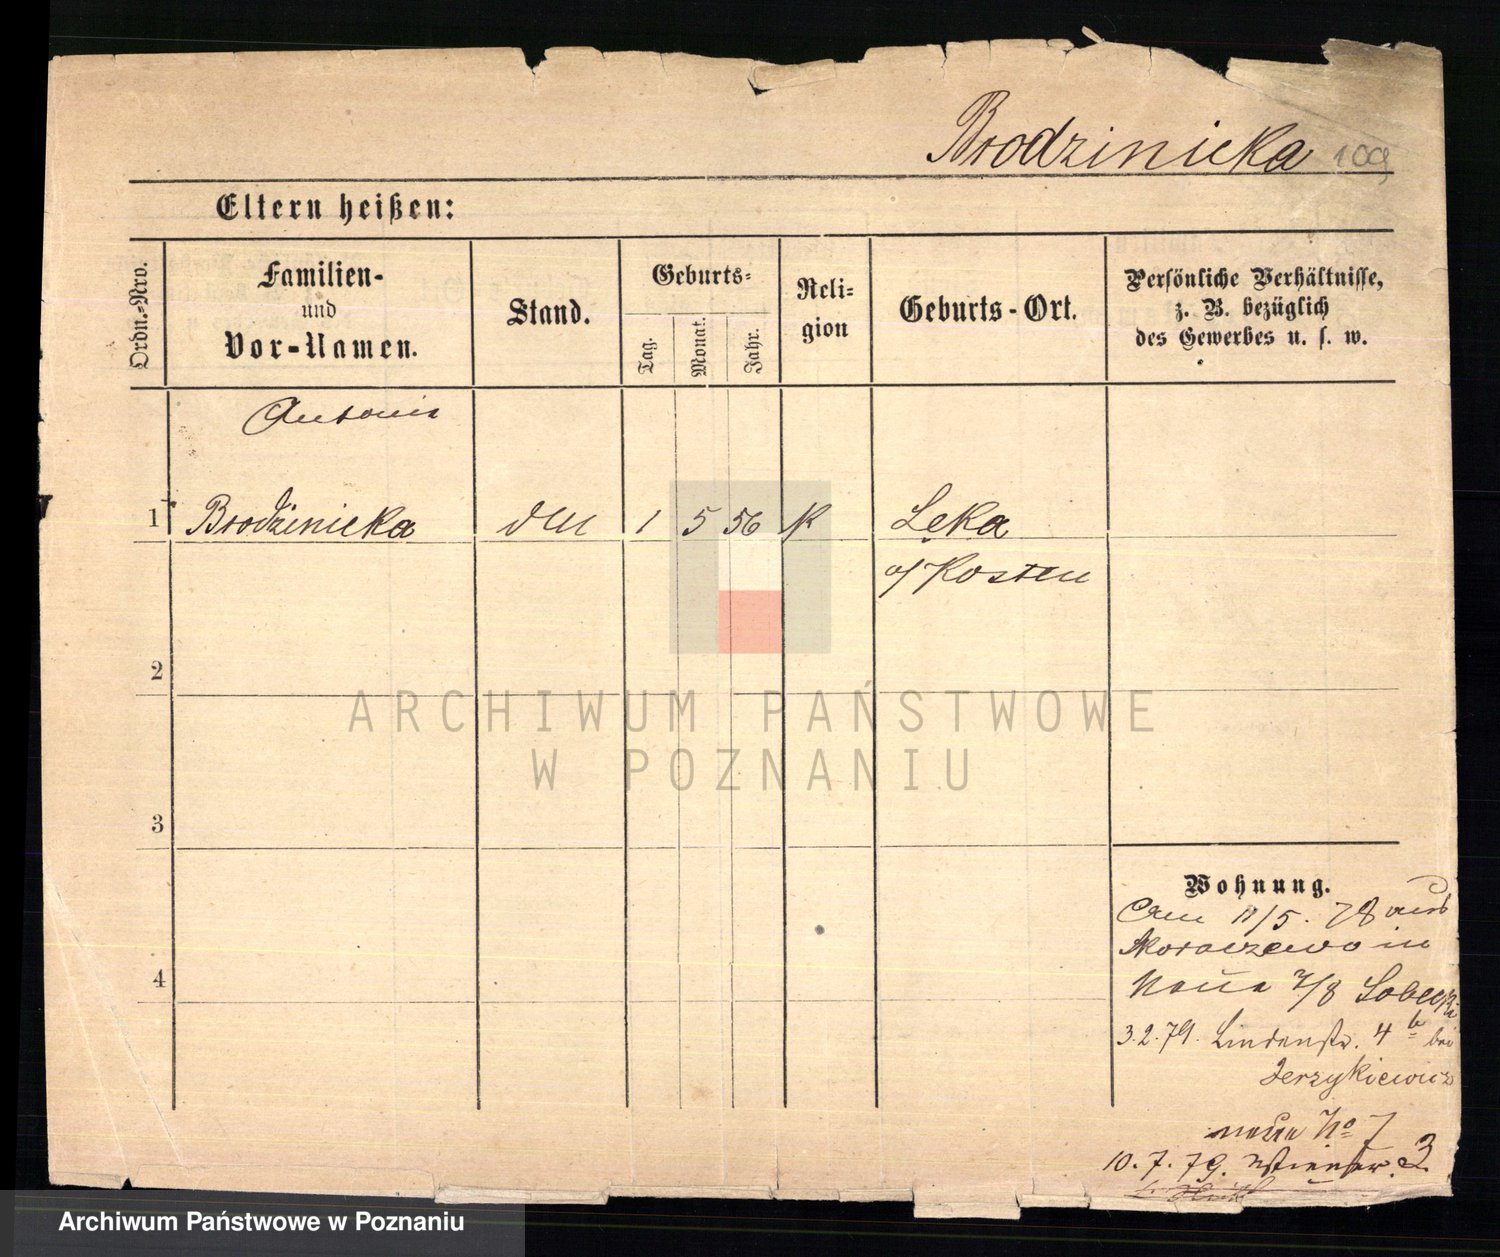 Brodzinicka 109
Eltern heißen:
Ordn.-Nro.
Familien-
und
Vor-Namen.
Stand.
Geburts-
Tag.
Monat.
Jahr.
Reli-
gion
Geburts-Ort.
Persönliche Verhältnisse,
z. B. bezüglich
des Gewerbes u. s. w.
Antonie
1 Brodzinicka 1 5 56 K Łęka
Kosten
2
3
4
Wohnung.
11/5. 78 aus
in
7/8
3.2.79. Lindenstr. 4 b bei
Jerzykiewicz
No 7
10. 7. 79. 3
ARCHIWUM PAŃSTWOWE
W POZNANIU
Archiwum Państwowe w Poznaniu